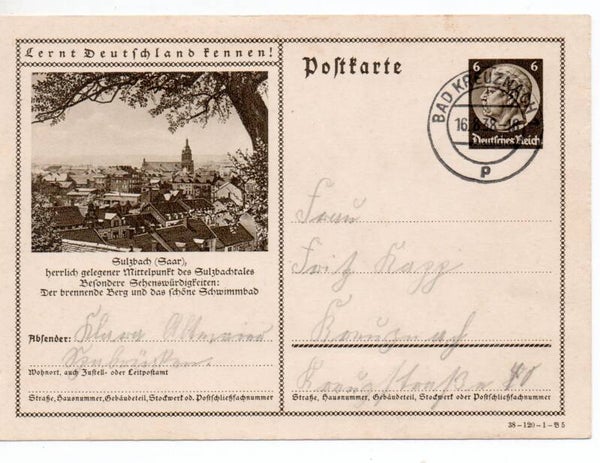 Lernt Deutschland kennen!
Sulzbach (Saar),
herrlich gelegener Mittelpunkt des Sulzbachtales
Besondere Sehenswürdigkeiten:
Der brennende Berg und das schöne Schwimmbad
Absender: Klara
Wohnort, auch Zustell- oder Leitpostamt
Straße, Hausnummer, Gebäudeteil, Stockwerk od. Postschließfachnummer
Postkarte
6 6
Deutsches Reich
BAD KREUZNACH
p
Frau
Fritz Kapp
Kreuznach
Kreuzstraße
Straße, Hausnummer, Gebäudeteil, Stockwerk oder Postschließfachnummer
38-120-1-B5